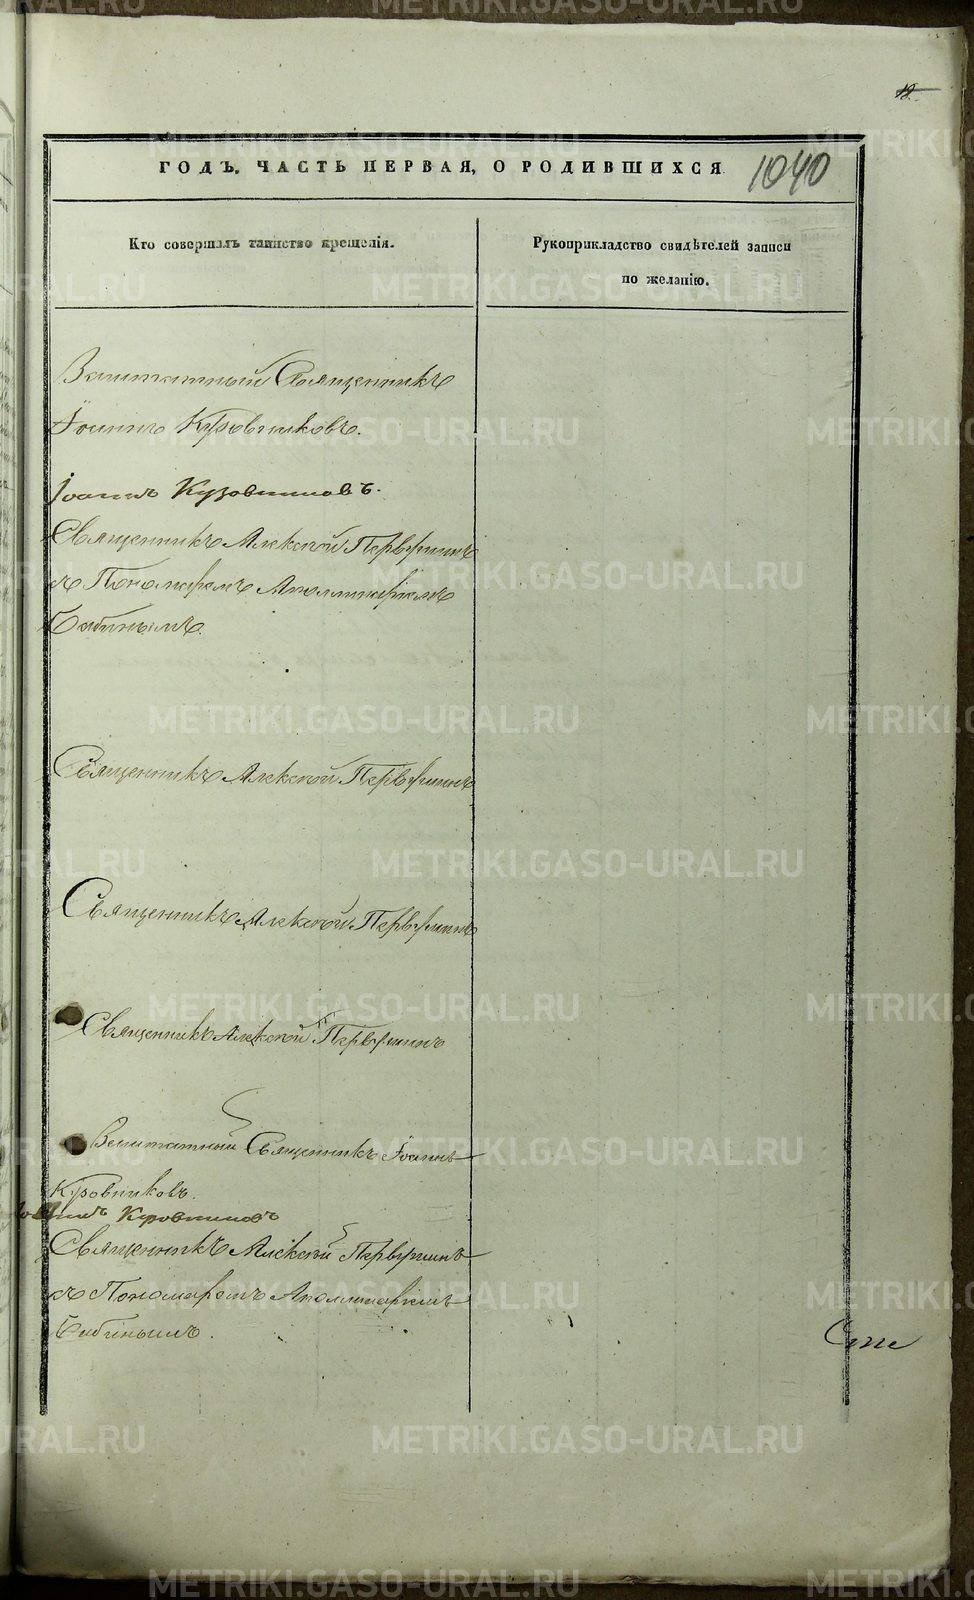 18
ГОДЪ. ЧАСТЬ ПЕРВАЯ, О РОДИВШИХСЯ
1040
Кто совершалъ таинство крещенія.
Рукоприкладство свидѣтелей записи
по желанію.
Заштатный Священникъ
Іоаннъ Кровниковъ.
Іоаннъ
Священникъ Алексѣй Первушинъ
съ Пономаремъ Аполлинаріемъ
Бабинымъ.
Священникъ Алексѣй Первушинъ
Священникъ Алексѣй Первушинъ
Священникъ Алексѣй Первушинъ
Заштатный Священникъ Іоаннъ
Кровниковъ.
Іоаннъ Кровниковъ
Священникъ Алексѣй Первушинъ
съ Пономаремъ Аполлинаріемъ
Бабинымъ.
METRIKI.GASO-URAL.RU